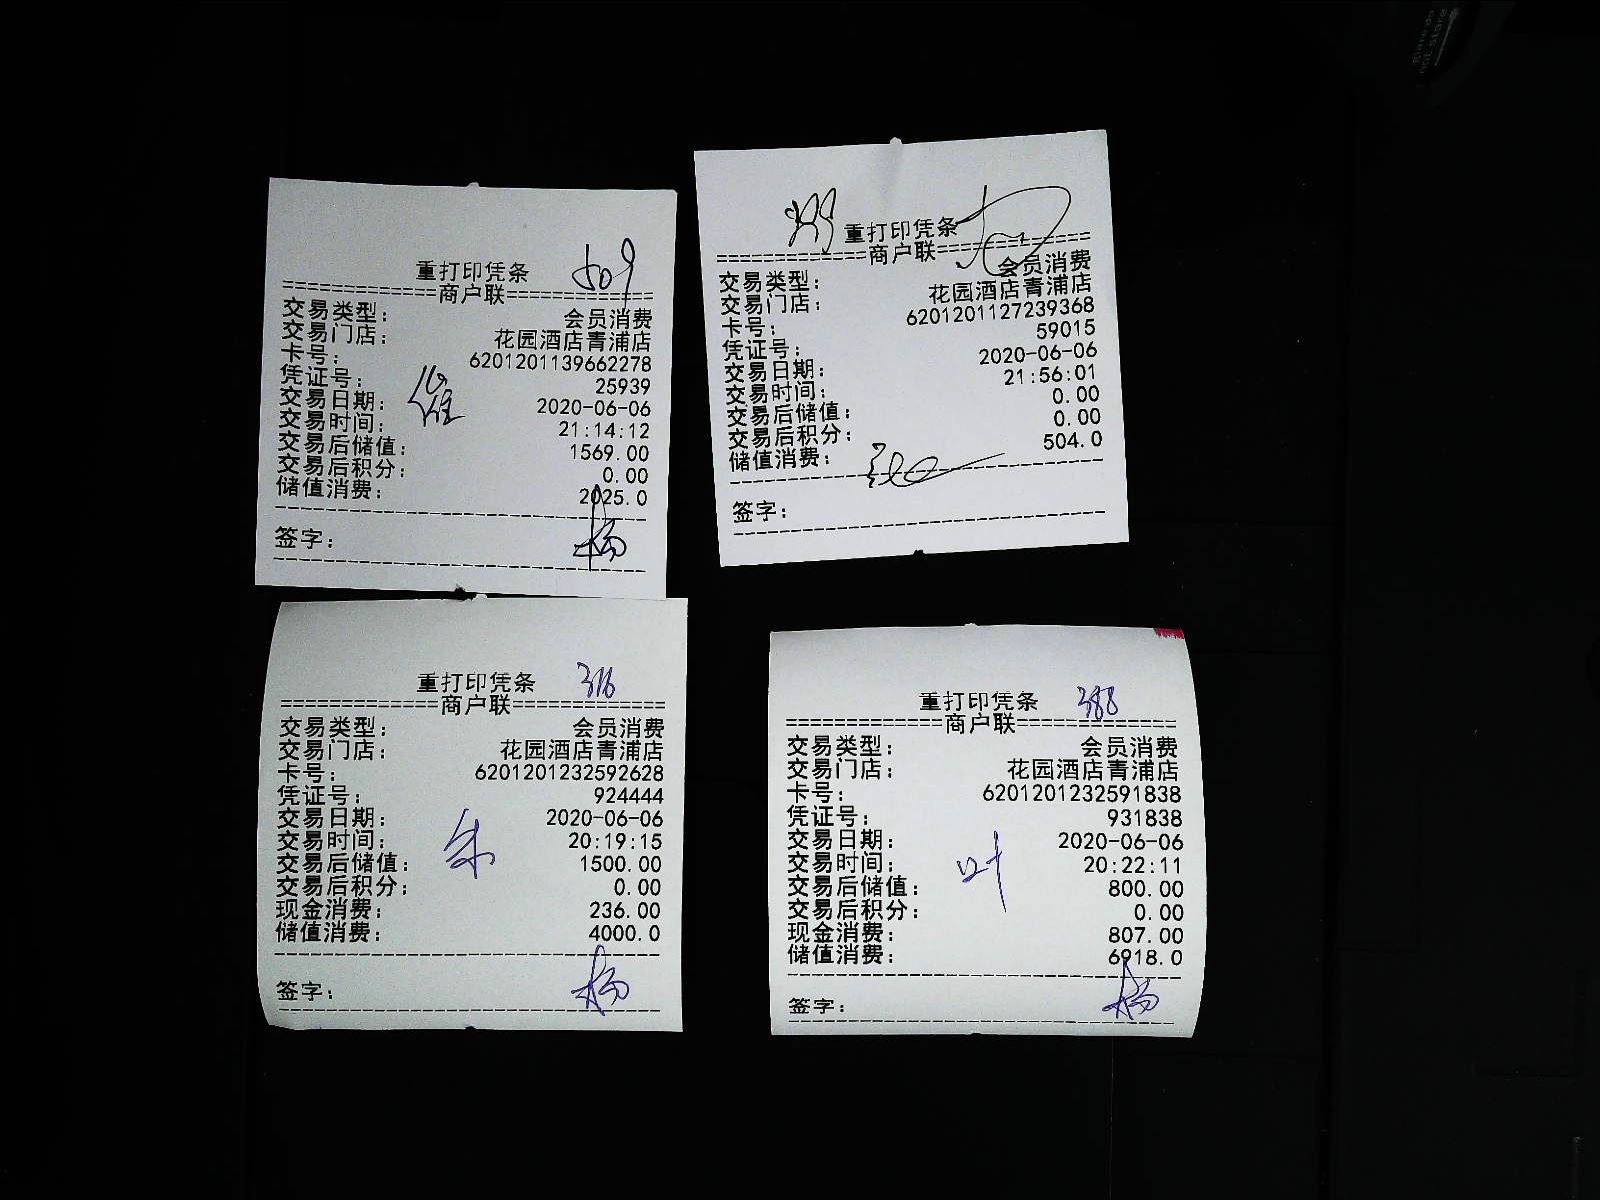 重打印凭条 509
============商户联============
交易类型: 会员消费
交易门店: 花园酒店青浦店
卡号: 6201201139662278
凭证号: 25939
交易日期: 2020-06-06
交易时间: 21:14:12
交易后储值: 1569.00
交易后积分: 0.00
储值消费: 2025.0
签字: 杨
重打印凭条
============商户联============
交易类型: 会员消费
交易门店: 花园酒店青浦店
卡号: 6201201127239368
凭证号: 59015
交易日期: 2020-06-06
交易时间: 21:56:01
交易后储值: 0.00
交易后积分: 0.00
储值消费: 504.0
签字:
重打印凭条 316
============商户联============
交易类型: 会员消费
交易门店: 花园酒店青浦店
卡号: 6201201232592628
凭证号: 924444
交易日期: 2020-06-06
交易时间: 20:19:15
交易后储值: 1500.00
交易后积分: 0.00
现金消费: 236.00
储值消费: 4000.0
签字: 杨
重打印凭条 388
============商户联============
交易类型: 会员消费
交易门店: 花园酒店青浦店
卡号: 6201201232591838
凭证号: 931838
交易日期: 2020-06-06
交易时间: 20:22:11
叶
交易后储值: 800.00
交易后积分: 0.00
现金消费: 807.00
储值消费: 6918.0
签字: 杨